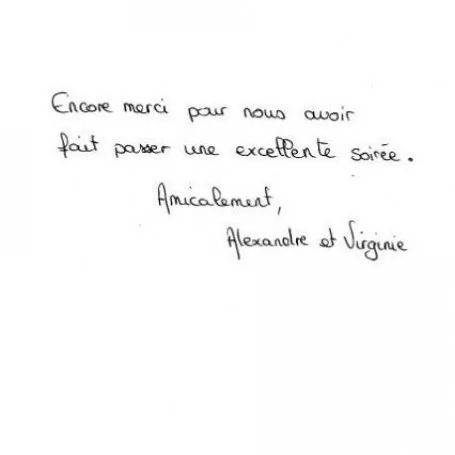 Encore merci pour nous avoir
fait passer une excellente soirée.
Amicalement,
Alexandre et Virginie